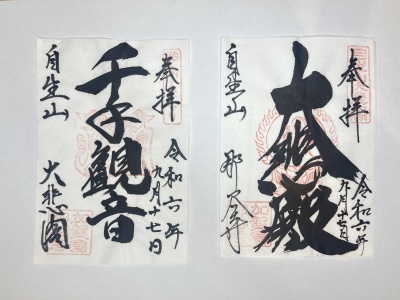 奉拝
令和六年
九月十七日
大悲殿
自生山
那谷寺
奉拝
令和六年
九月十七日
千手觀音
自生山
大悲閣